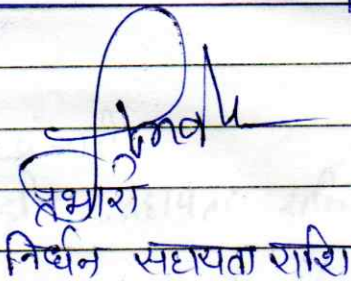 प्रभारी
निर्धन सहायता राशि